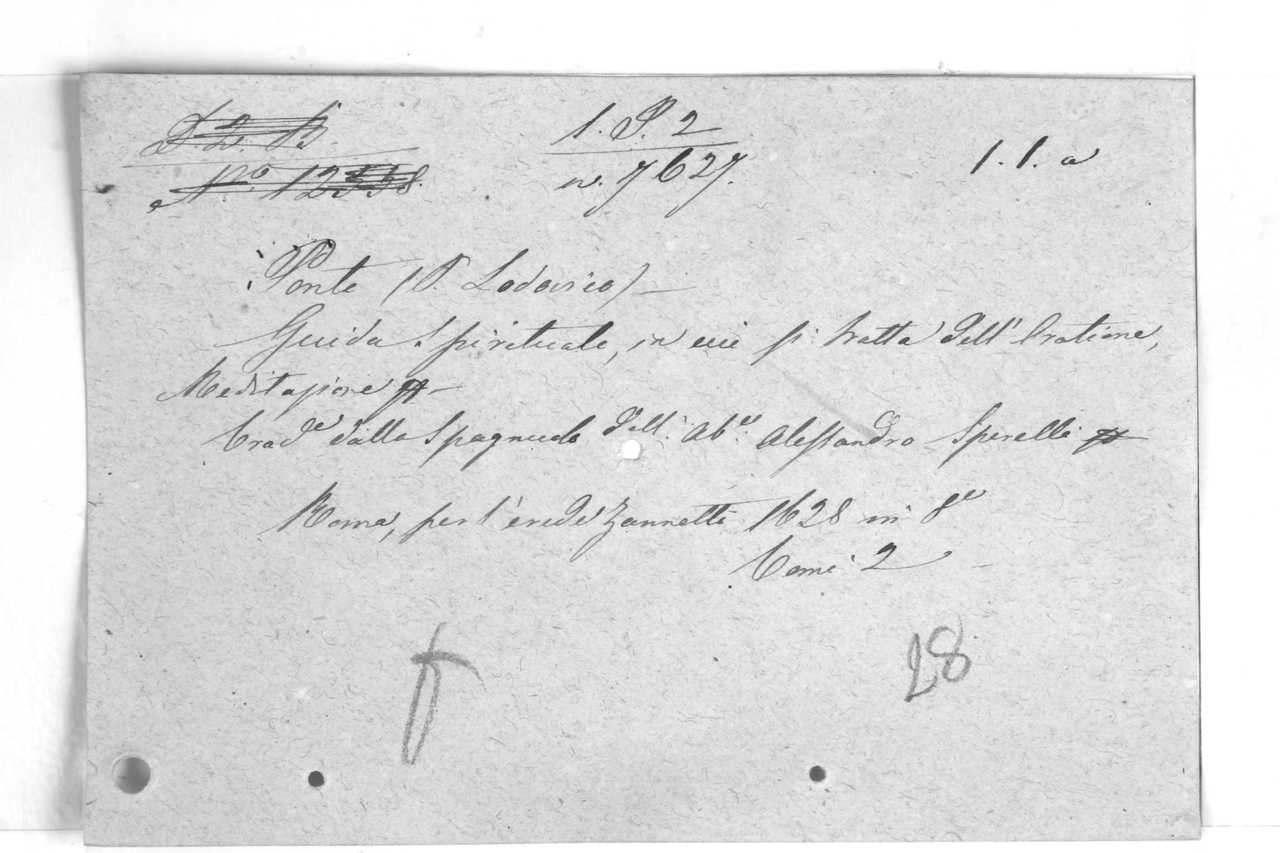 1. P. 2
n. 7627.
1. 1. a
Ponte (P. Lodovico) —
Guida Spirituale, in cui si tratta dell' Oratione,
Meditasione —
Trad.e dalla Spagnuola dell' Ab.e Alessandro Sperelli
Roma, per l'erede Zannetti 1628 in 8°
Tomi 2
28